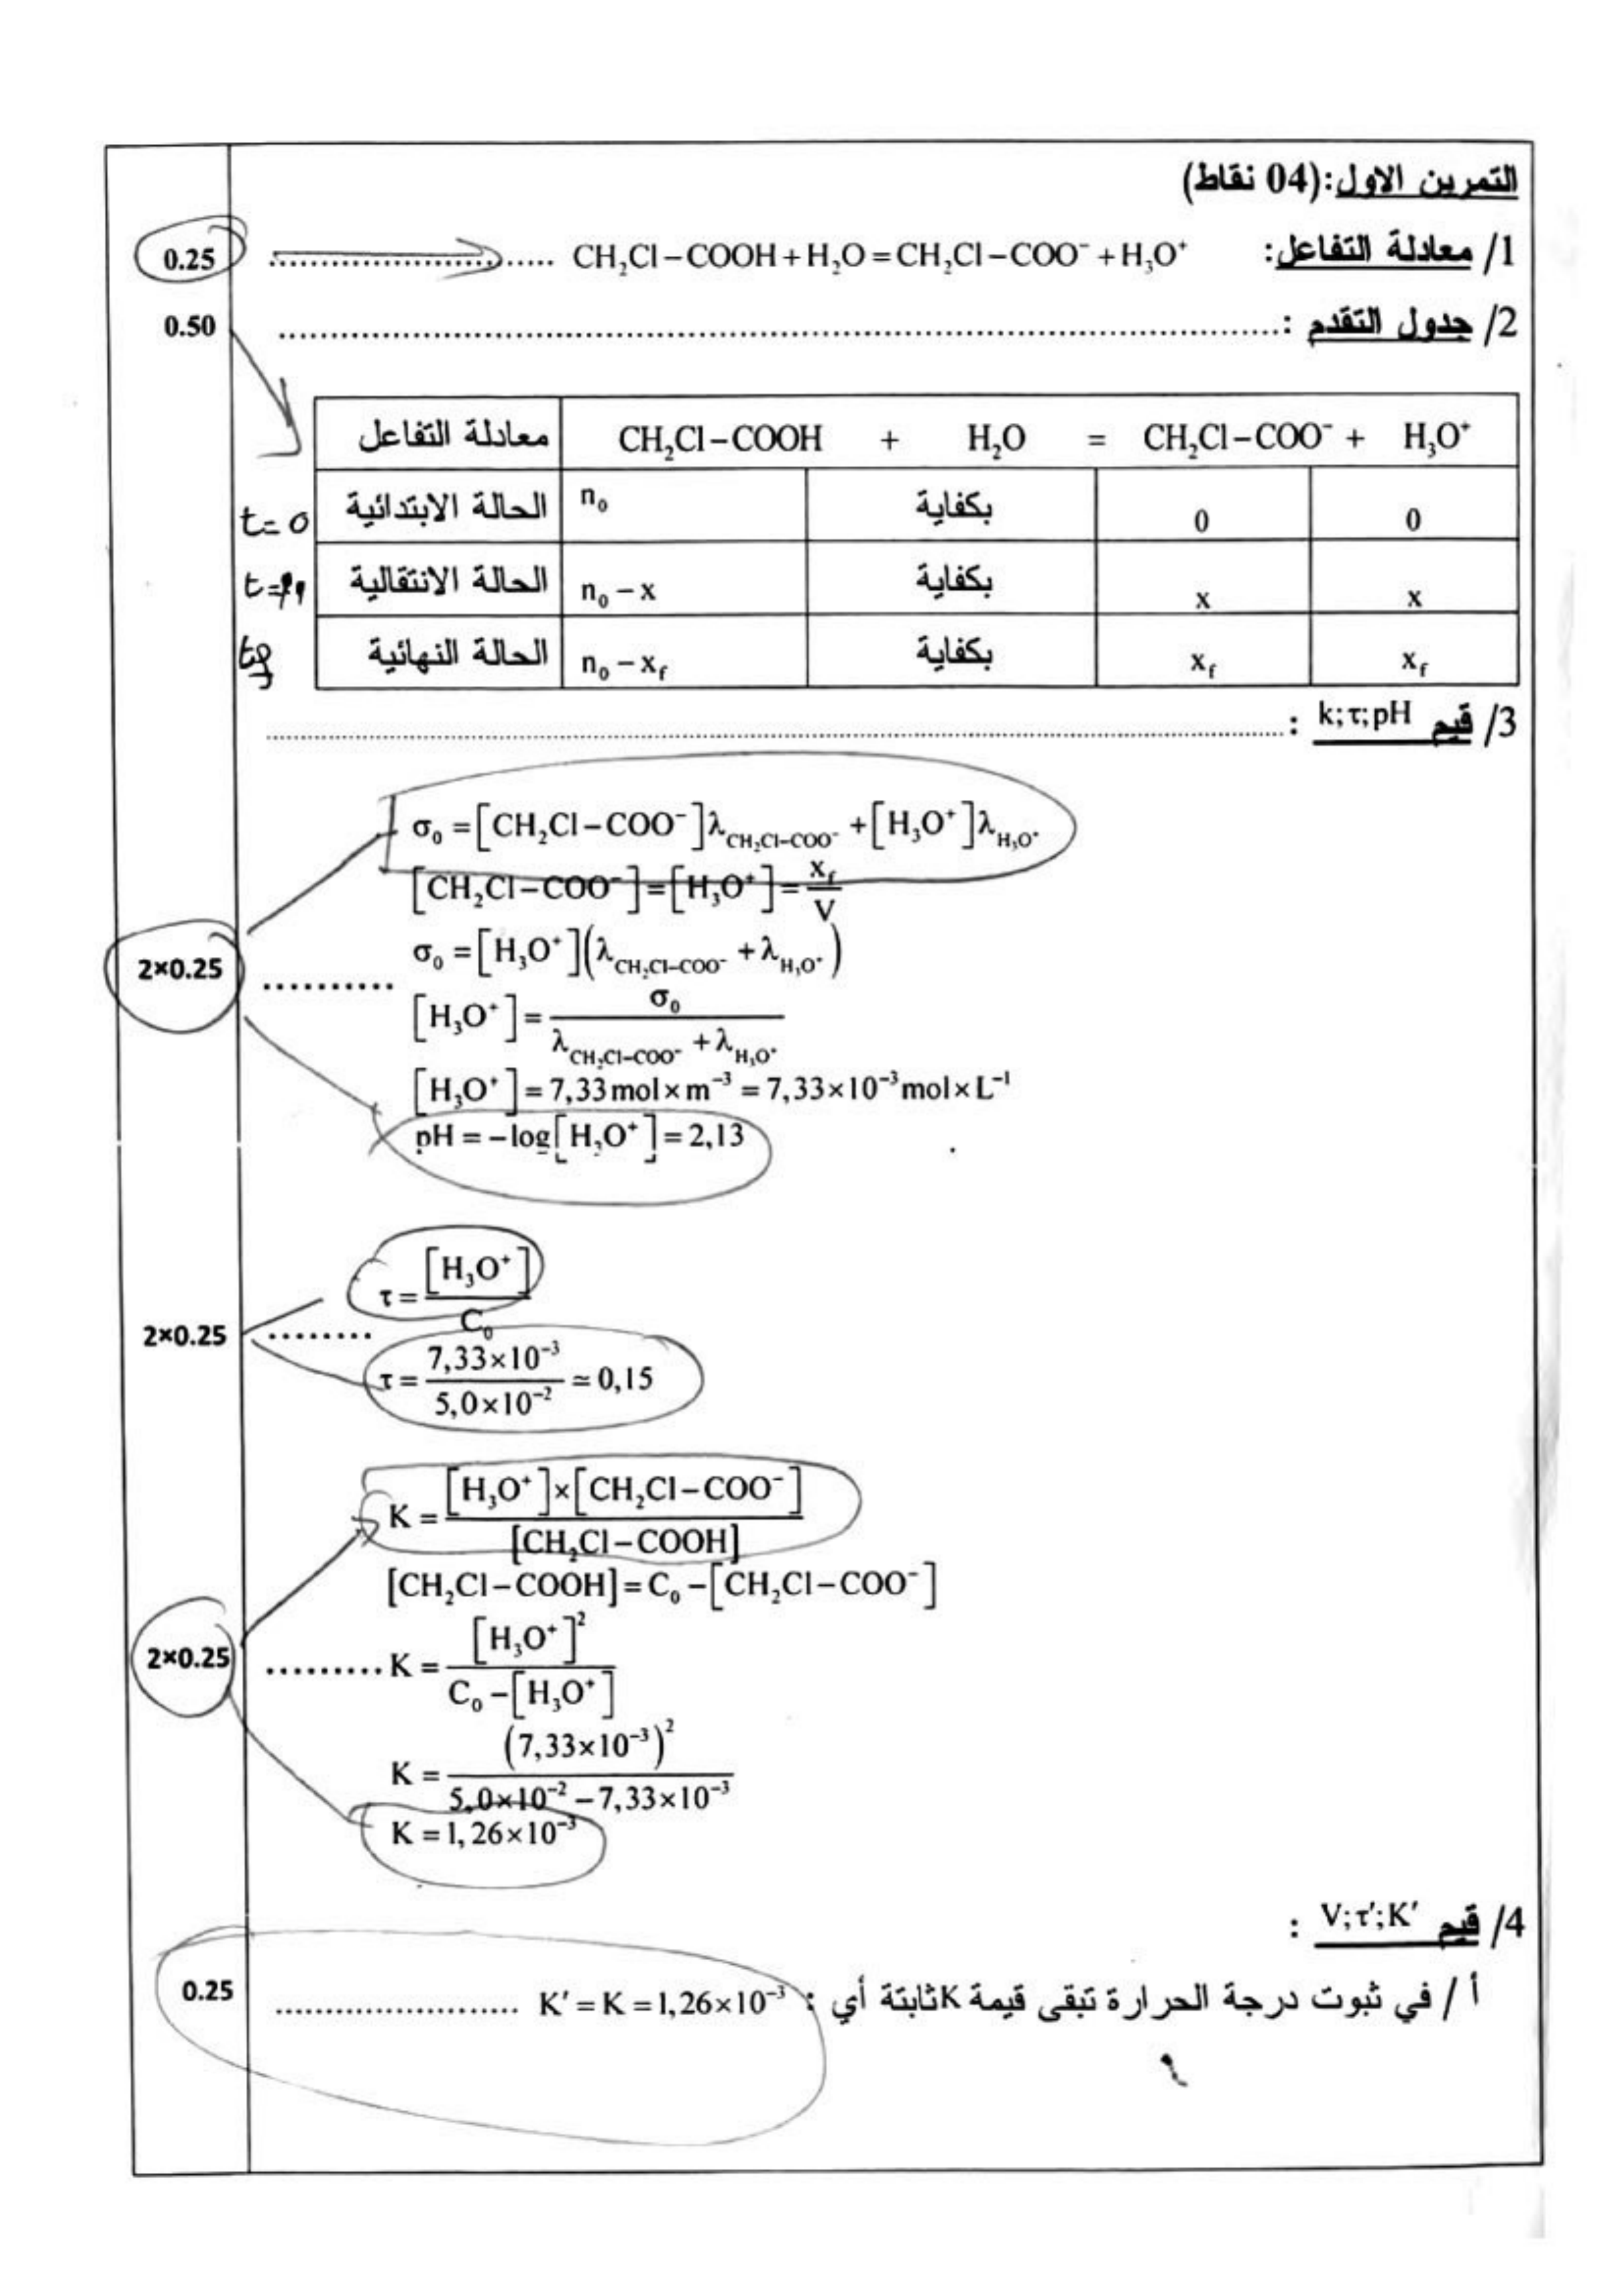 التمرين الاول:(04 نقاط)
1/ معادلة التفاعل: CH₂Cl−COOH+H₂O=CH₂Cl−COO⁻+H₃O⁺ ...................... 0.25
2/ جدول التقدم : ...................... 0.50
معادلة التفاعل CH₂Cl−COOH + H₂O = CH₂Cl−COO⁻ + H₃O⁺
t=0 الحالة الابتدائية n₀ بكفاية 0 0
الحالة الانتقالية n₀−x بكفاية x x
tf الحالة النهائية n₀−x_f بكفاية x_f x_f
3/ قيم k;τ;pH : ......................
σ₀=[CH₂Cl−COO⁻]λ_CH₂Cl−COO⁻+[H₃O⁺]λ_H₃O⁺
[CH₂Cl−COO⁻]=[H₃O⁺]=x_f/V
σ₀=[H₃O⁺](λ_CH₂Cl−COO⁻+λ_H₃O⁺)
2×0.25 ..........
[H₃O⁺]=σ₀/(λ_CH₂Cl−COO⁻+λ_H₃O⁺)
[H₃O⁺]=7,33mol×m⁻³=7,33×10⁻³mol×L⁻¹
pH=−log[H₃O⁺]=2,13
τ=[H₃O⁺]/C₀
2×0.25 ........
τ=7,33×10⁻³/5,0×10⁻²≃0,15
K=[H₃O⁺]×[CH₂Cl−COO⁻]/[CH₂Cl−COOH]
[CH₂Cl−COOH]=C₀−[CH₂Cl−COO⁻]
2×0.25 ......... K=[H₃O⁺]²/(C₀−[H₃O⁺])
K=(7,33×10⁻³)²/(5,0×10⁻²−7,33×10⁻³)
K=1,26×10⁻³
4/ قيم V;τ′;K′ :
أ / في ثبوت درجة الحرارة تبقى قيمة K ثابتة أي : K′=K=1,26×10⁻³ ...................... 0.25